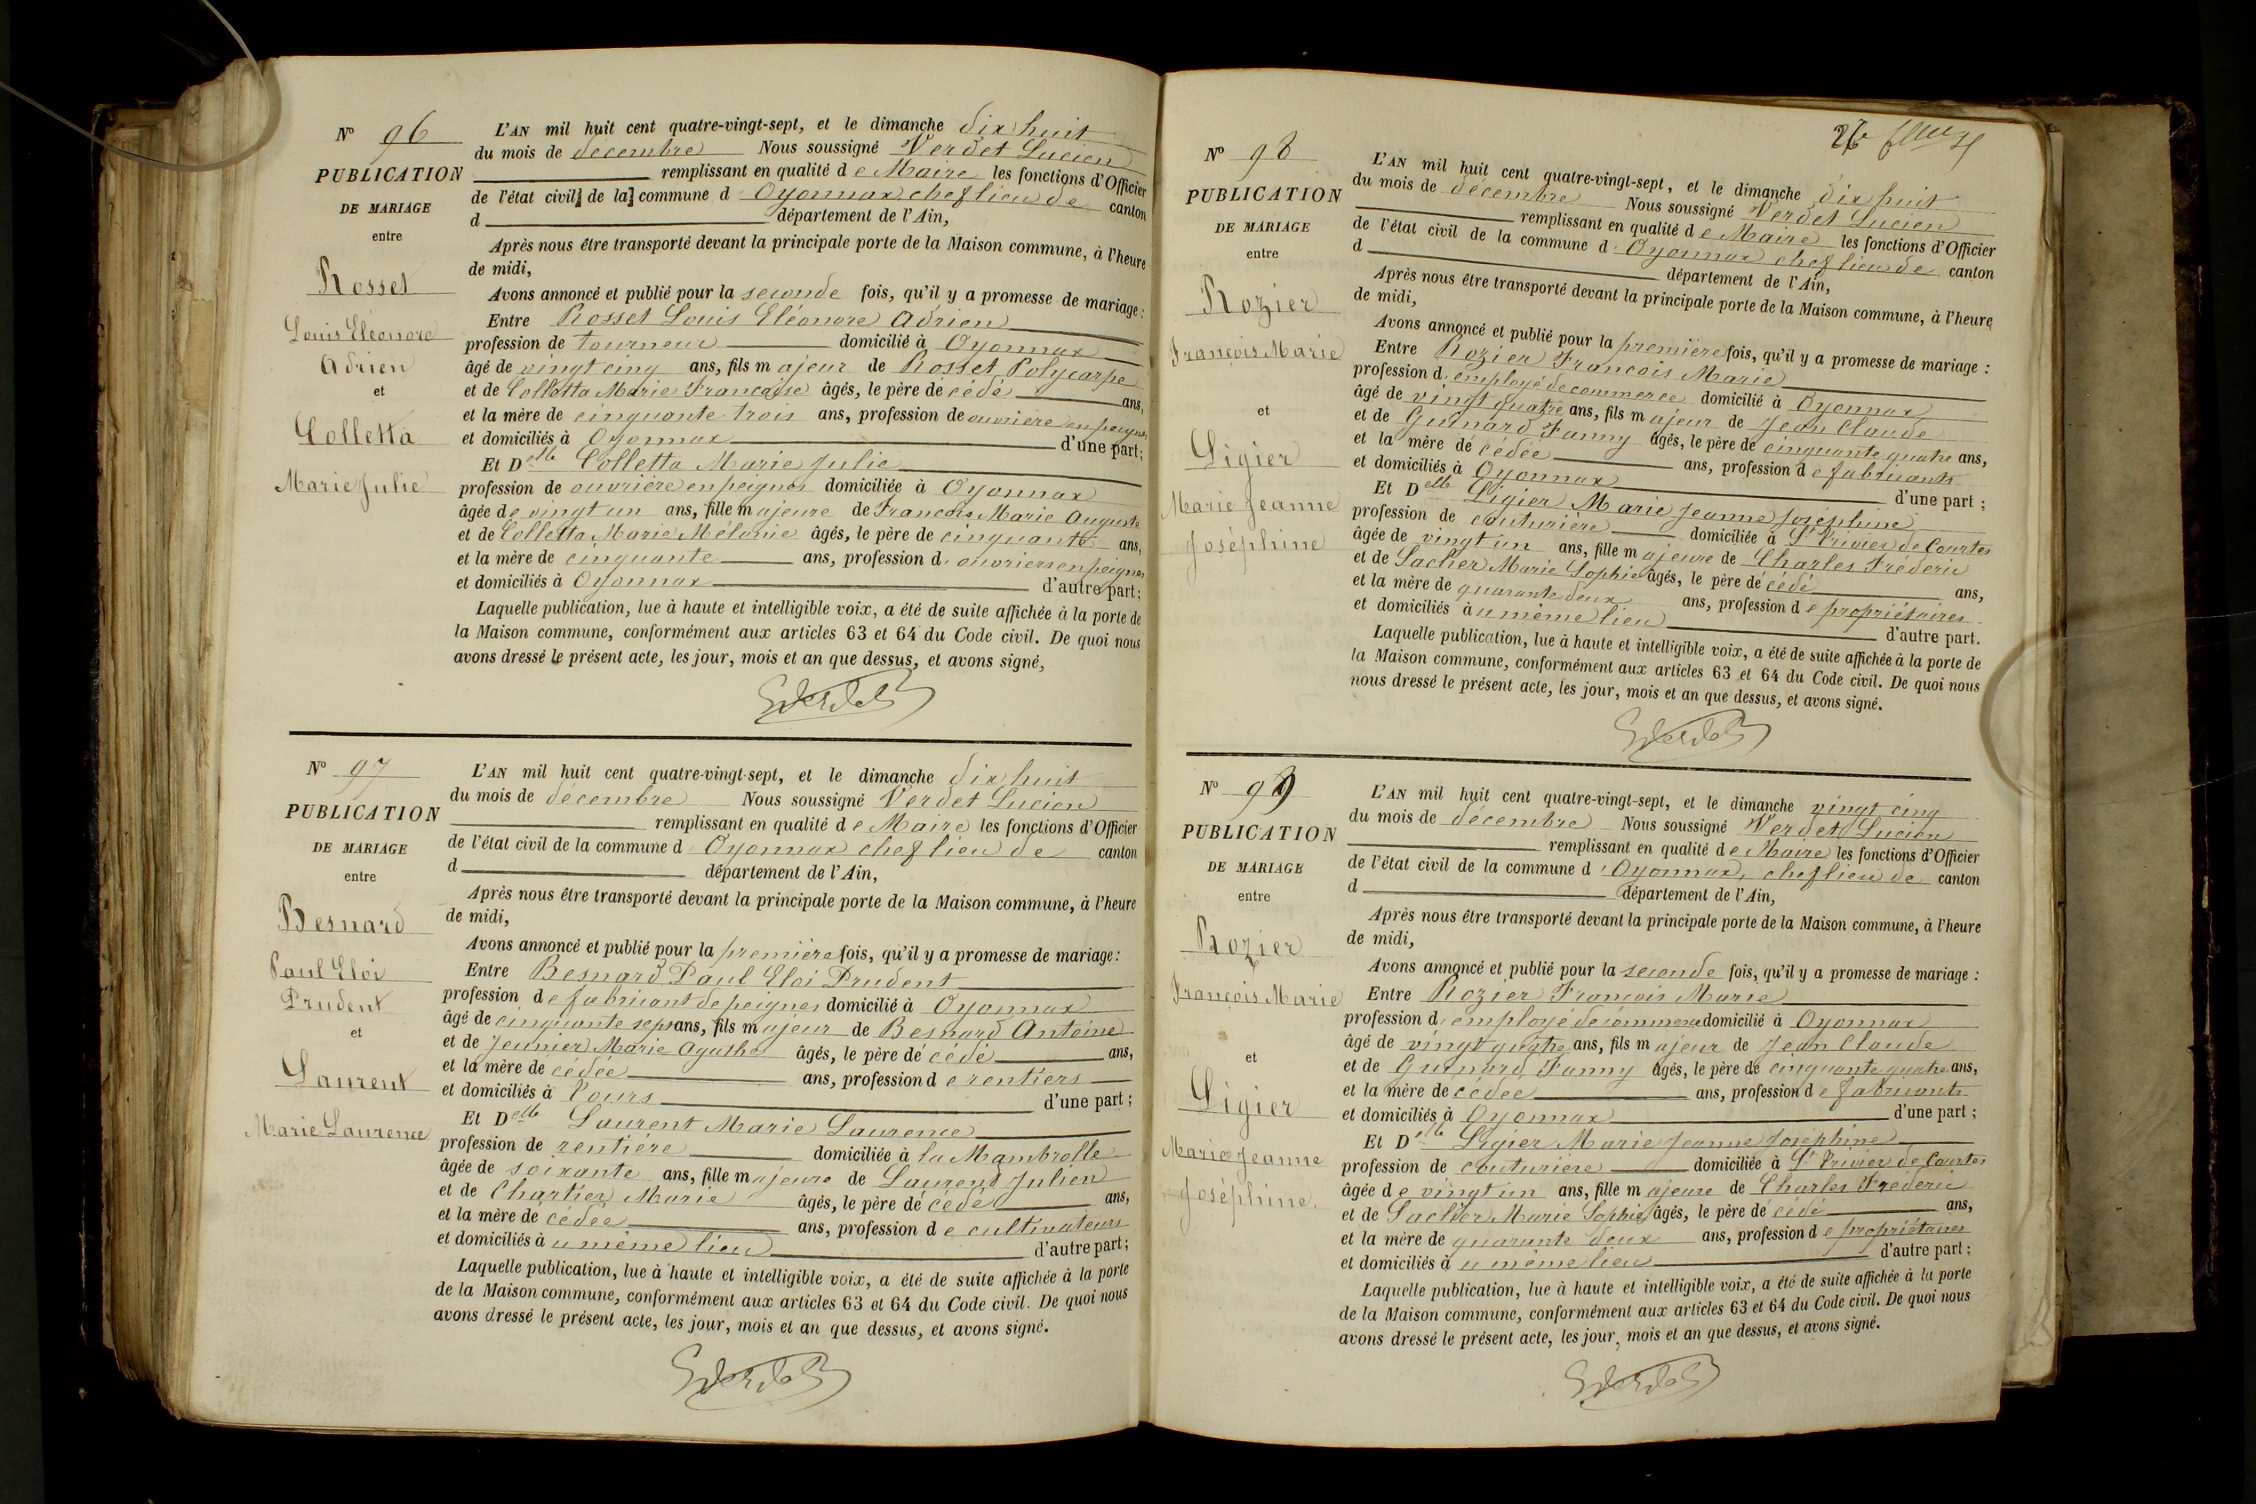 Nº 96
PUBLICATION
DE MARIAGE
entre
Rosset
Louis Eléonore
Adrien
et
Colletta
Marie Julie
L'AN mil huit cent quatre-vingt-sept, et le dimanche dix huit
du mois de decembre Nous soussigné Verdet Lucien
remplissant en qualité de Maire les fonctions d'Officier
de l'état civil de la commune d'Oyonnax chef lieu de canton
d département de l'Ain,
Après nous être transporté devant la principale porte de la Maison commune, à l'heure
de midi,
Avons annoncé et publié pour la seconde fois, qu'il y a promesse de mariage :
Entre Rosset Louis Eléonore Adrien
profession de tourneur domicilié à Oyonnax
âgé de vingt cinq ans, fils majeur de Rosset Polycarpe
et de Colletta Marie Francoise âgés, le père décédé ans,
et la mère de cinquante trois ans, profession de ouvrière en peignes
et domiciliés à Oyonnax d'une part ;
Et Delle Colletta Marie Julie
profession de ouvrière en peignes domiciliée à Oyonnax
âgée de vingt un ans, fille majeure de Francois Marie Auguste
et de Colletta Marie Mélanie âgés, le père de cinquante ans,
et la mère de cinquante ans, profession d'ouvriers en peignes
et domiciliés à Oyonnax d'autre part ;
Laquelle publication, lue à haute et intelligible voix, a été de suite affichée à la porte de
la Maison commune, conformément aux articles 63 et 64 du Code civil. De quoi nous
avons dressé le présent acte, les jour, mois et an que dessus, et avons signé,
Nº 97
PUBLICATION
DE MARIAGE
entre
Besnard
Paul Eloi
Prudent
et
Laurent
Marie Laurence
L'AN mil huit cent quatre-vingt-sept, et le dimanche dix huit
du mois de décembre Nous soussigné Verdet Lucien
remplissant en qualité de Maire les fonctions d'Officier
de l'état civil de la commune d'Oyonnax chef lieu de canton
d département de l'Ain,
Après nous être transporté devant la principale porte de la Maison commune, à l'heure
de midi,
Avons annoncé et publié pour la première fois, qu'il y a promesse de mariage :
Entre Besnard Paul Eloi Prudent
profession de fabricant de peignes domicilié à Oyonnax
âgé de cinquante sept ans, fils majeur de Besnard Antoine
et de Jeunier Marie Agathe âgés, le père décédé ans,
et la mère décédée ans, profession de rentiers
et domiciliés à Tours d'une part ;
Et Delle Laurent Marie Laurence
profession de rentière domiciliée à la Mambrolle
âgée de soixante ans, fille majeure de Laurent Julien
et de Chartier Marie âgés, le père décédé ans,
et la mère décédée ans, profession de cultivateurs
et domiciliés au même lieu d'autre part ;
Laquelle publication, lue à haute et intelligible voix, a été de suite affichée à la porte
de la Maison commune, conformément aux articles 63 et 64 du Code civil. De quoi nous
avons dressé le présent acte, les jour, mois et an que dessus, et avons signé.
26
Nº 98
PUBLICATION
DE MARIAGE
entre
Rozier
François Marie
et
Ligier
Marie Jeanne
Joséphine
L'AN mil huit cent quatre-vingt-sept, et le dimanche dix huit
du mois de décembre Nous soussigné Verdet Lucien
remplissant en qualité de Maire les fonctions d'Officier
de l'état civil de la commune d'Oyonnax chef lieu de canton
d département de l'Ain,
Après nous être transporté devant la principale porte de la Maison commune, à l'heure
de midi,
Avons annoncé et publié pour la première fois, qu'il y a promesse de mariage :
Entre Rozier Francois Marie
profession d'employé de commerce domicilié à Oyonnax
âgé de vingt quatre ans, fils majeur de Jean Claude
et de Guinard Fanny âgés, le père de cinquante quatre ans,
et la mère décédée ans, profession de fabricants
et domiciliés à Oyonnax d'une part ;
Et Delle Ligier Marie Jeanne Joséphine
profession de couturière domiciliée à St Trivier de Courtes
âgée de vingt un ans, fille majeure de Charles Fréderic
et de Sacher Marie Sophie âgés, le père décédé ans,
et la mère de quarante deux ans, profession de propriétaires
et domiciliés au même lieu d'autre part.
Laquelle publication, lue à haute et intelligible voix, a été de suite affichée à la porte de
la Maison commune, conformément aux articles 63 et 64 du Code civil. De quoi nous
nous dressé le présent acte, les jour, mois et an que dessus, et avons signé.
Nº 99
PUBLICATION
DE MARIAGE
entre
Rozier
François Marie
et
Ligier
Marie Jeanne
Joséphine.
L'AN mil huit cent quatre-vingt-sept, et le dimanche vingt cinq
du mois de décembre Nous soussigné Verdet Lucien
remplissant en qualité de Maire les fonctions d'Officier
de l'état civil de la commune d'Oyonnax, chef lieu de canton
d département de l'Ain,
Après nous être transporté devant la principale porte de la Maison commune, à l'heure
de midi,
Avons annoncé et publié pour la seconde fois, qu'il y a promesse de mariage :
Entre Rozier Francois Marie
profession d'employé de commerce domicilié à Oyonnax
âgé de vingt quatre ans, fils majeur de Jean Claude
et de Guinard Fanny âgés, le père de cinquante quatre ans,
et la mère décédée ans, profession de fabricants
et domiciliés à Oyonnax d'une part ;
Et Delle Ligier Marie Jeanne Joséphine
profession de couturière domiciliée à St Trivier de Courtes
âgée de vingt un ans, fille majeure de Charles Fréderic
et de Sacher Marie Sophie âgés, le père décédé ans,
et la mère de quarante deux ans, profession de propriétaires
et domiciliés au même lieu d'autre part ;
Laquelle publication, lue à haute et intelligible voix, a été de suite affichée à la porte
de la Maison commune, conformément aux articles 63 et 64 du Code civil. De quoi nous
avons dressé le présent acte, les jour, mois et an que dessus, et avons signé.